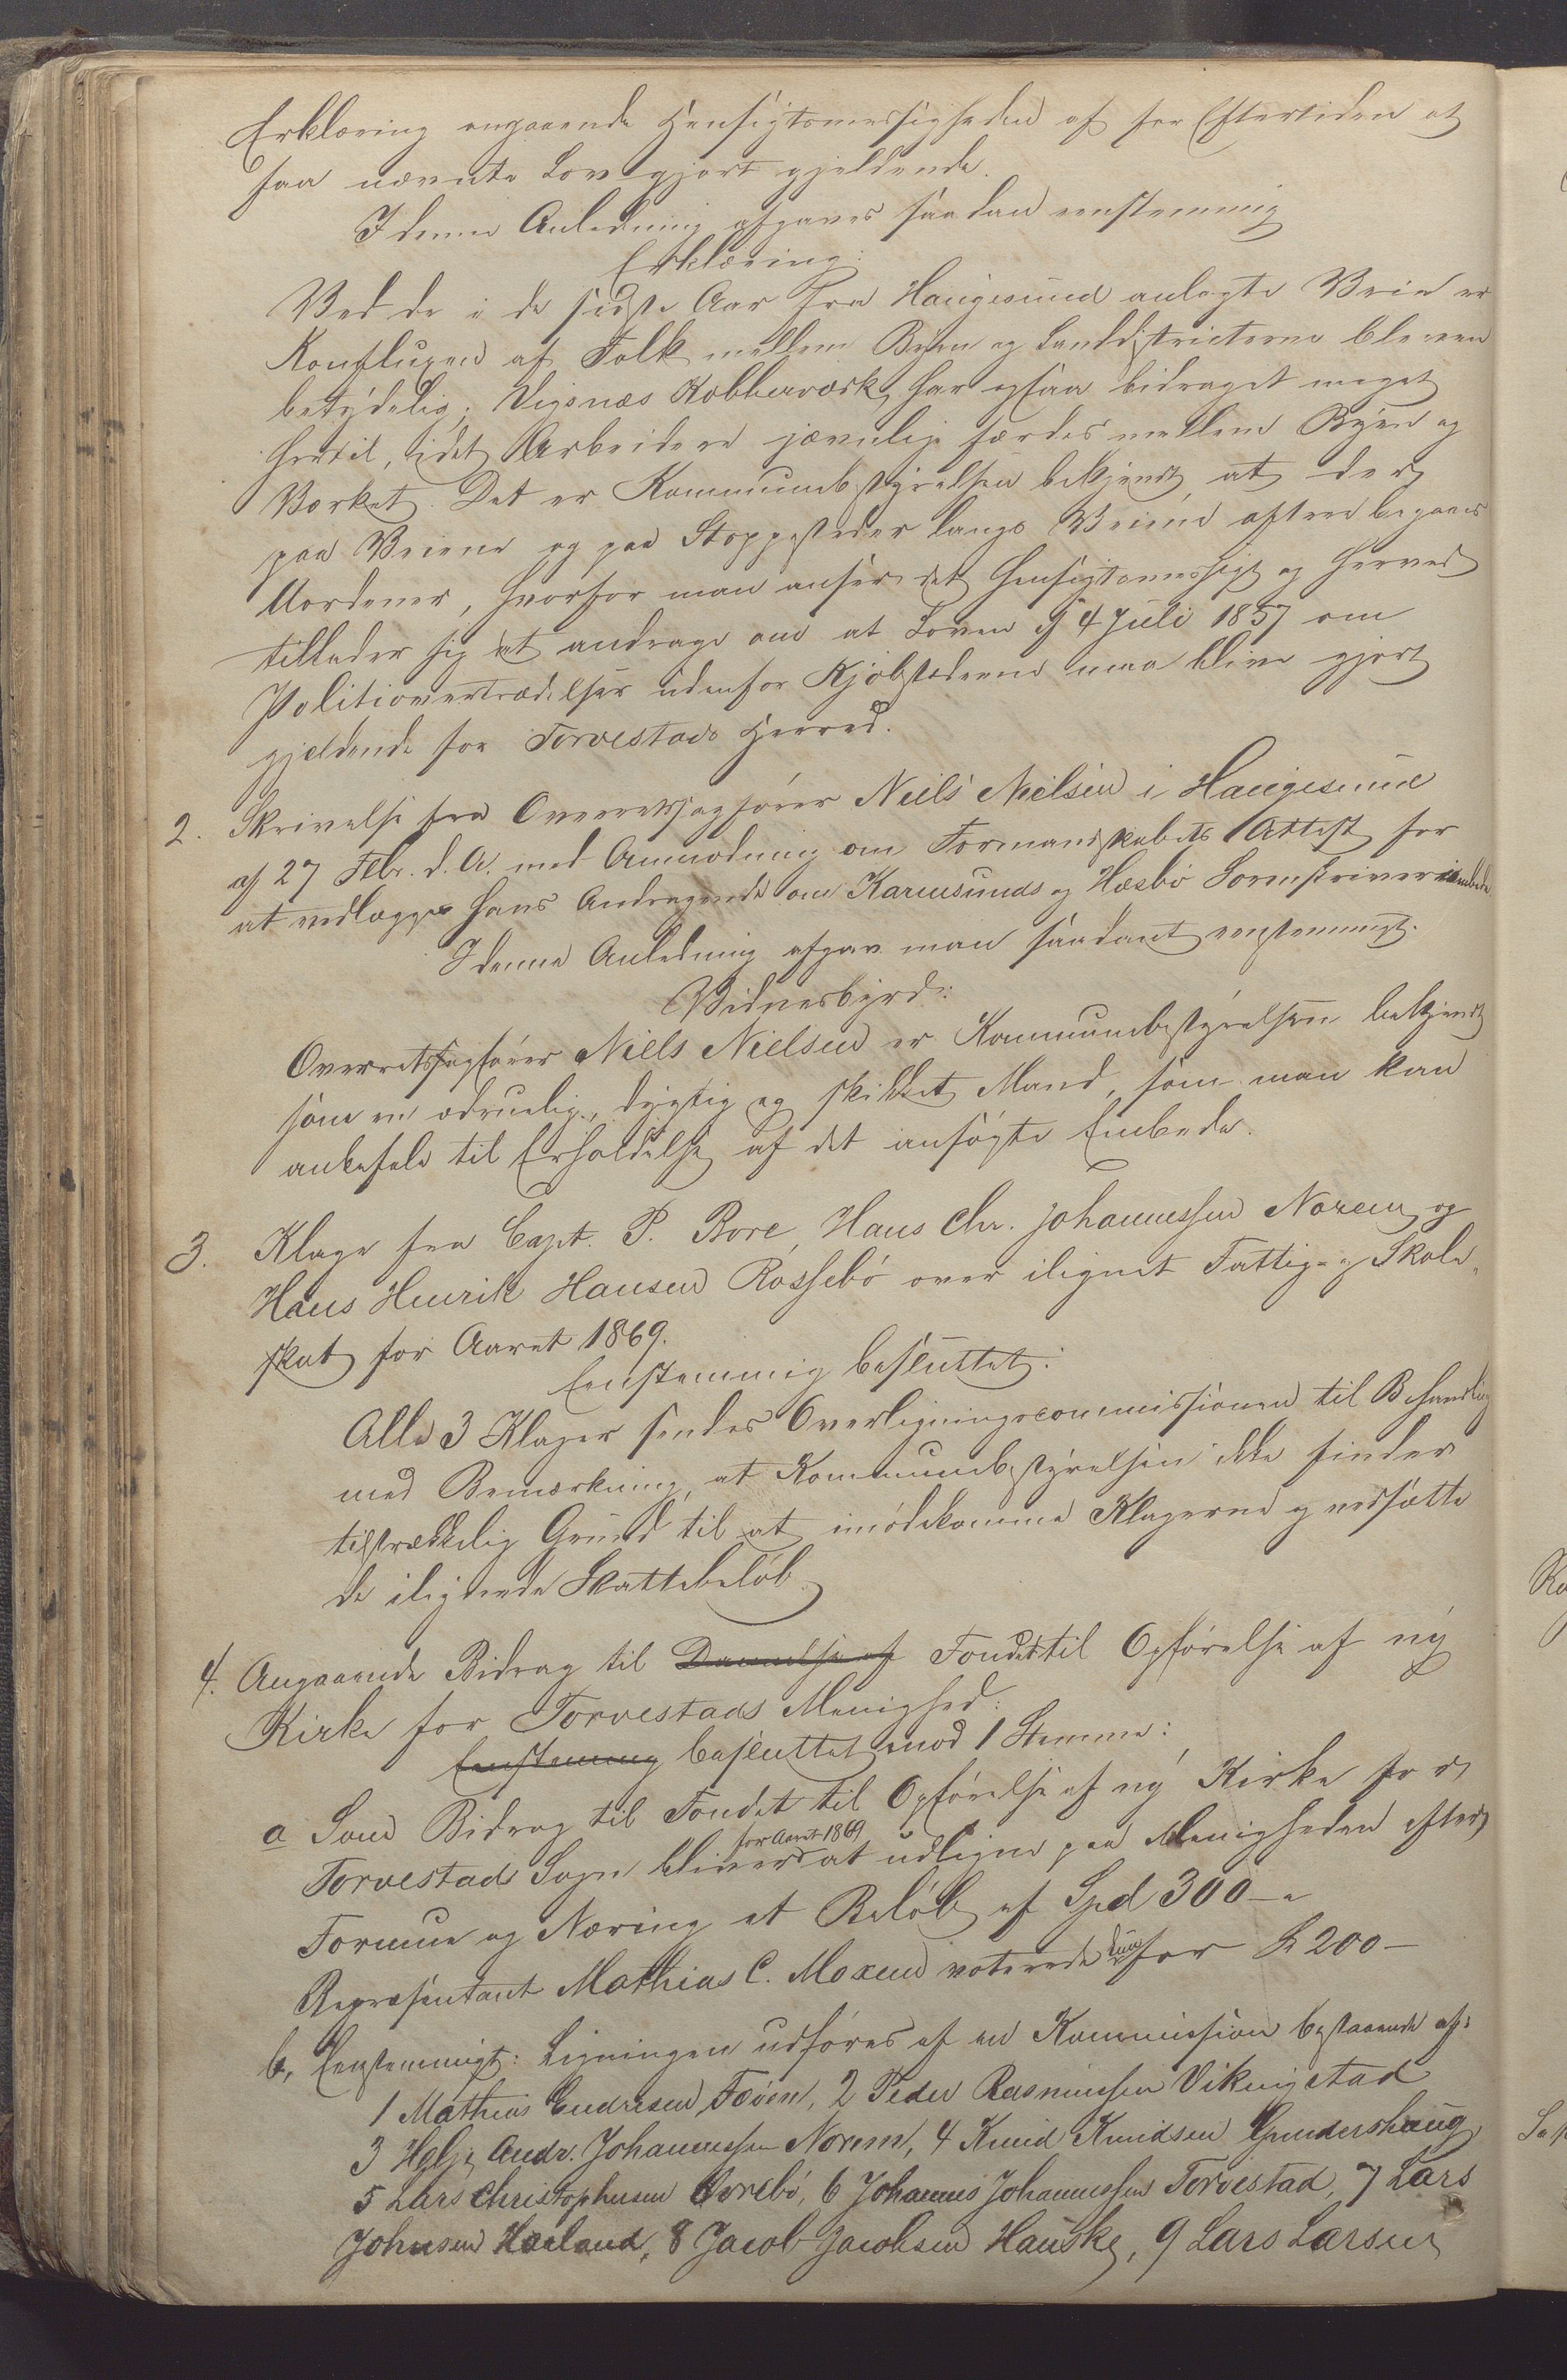 Erklæring angaaende Hensigtsmessigheden af for Eftertiden at
faa nævnte Lov gjort gjeldende.
I denne Anledning afgaves saadan eenstemmig
Erklæring:
Ved de i de sidste Aar fra Haugesund anlagte Veie er
Konfluxen af Folk mellem Byen og Landdistricterne bleven
betydelig. Vigsnæs Kobberværk har ogsaa bidraget meget
hertil, idet Arbeidere jævnlig færdes mellem Byen og
Værket. Det er Kommunebestyrelsen bekjendt at der
paa Veiene og paa Stoppesteder langs Veiene oftere begaaes
Uordener, hvorfor man anser det hensigtsmessigt og herved
tillader sig at andrage om at Loven af 4 Juli 1857 om
Politiovertrædelser udenfor Kjøbstæderne maa blive gjort
gjeldende for Torvestads Herred.
2. Skrivelse fra Overretssagfører Niels Nielsen i Haugesund
af 27 Febr. d. A. med Anmodning om Formandskabets Attest for
at vedlægges hans Andragende om Karmsunds og Hesbø Sorenskriverembede.
I denne Anledning afgav man saadant eenstemmigt
Vidnesbyrd:
Overretssagfører Niels Nielsen er Kommunebestyrelsen bekjendt
som en ædruelig, dygtig og skikket Mand, som man kan
anbefale til Erholdelse af det ansøgte Embede.
3. Klage fra Capt. P. Bore, Hans Chr. Johannessen Norem og
Hans Henrik Hansen Røssebø over ilignet Fattig- og Skole-
skat for Aaret 1869.
Eenstemmig besluttet:
Alle 3 Klager sendes Overligningscommissionen til Behandling
med Bemærkning, at Kommunebestyrelsen ikke finder
tilstrækkelig Grund til at imødekomme Klagerne og nedsætte
de ilignede Skattebeløb.
4. Angaaende Bidrag til Dannelse af Fondet til Opførelse af ny
Kirke for Torvestads Menighed:
Eenstemmig besluttet mod 1 Stemme:
a Som Bidrag til Fondet til Opførelse af ny Kirke for
Torvestads Sogn bliver for Aaret 1869 at udligne paa Menigheden efter
Formue og Næring et Beløb af Spd 300 –
Repræsentant Mathias C. Moxem voterede kun for 200 –
b, Eenstemmigt: Ligningen udføres af en Kommission bestaaende af:
1 Mathias Endresen Føien, 2 Peder Rasmussen Vikingstad
3 Helje Andr. Johannessen Norem, 4 Knud Knudsen Gundershaug,
5 Lars Christophersen Ørebø, 6 Johannes Johannessen Torvestad, 7 Lars
Johnsen Haaland, 8 Jacob Jacobsen Hauske, 9 Lars Larsen